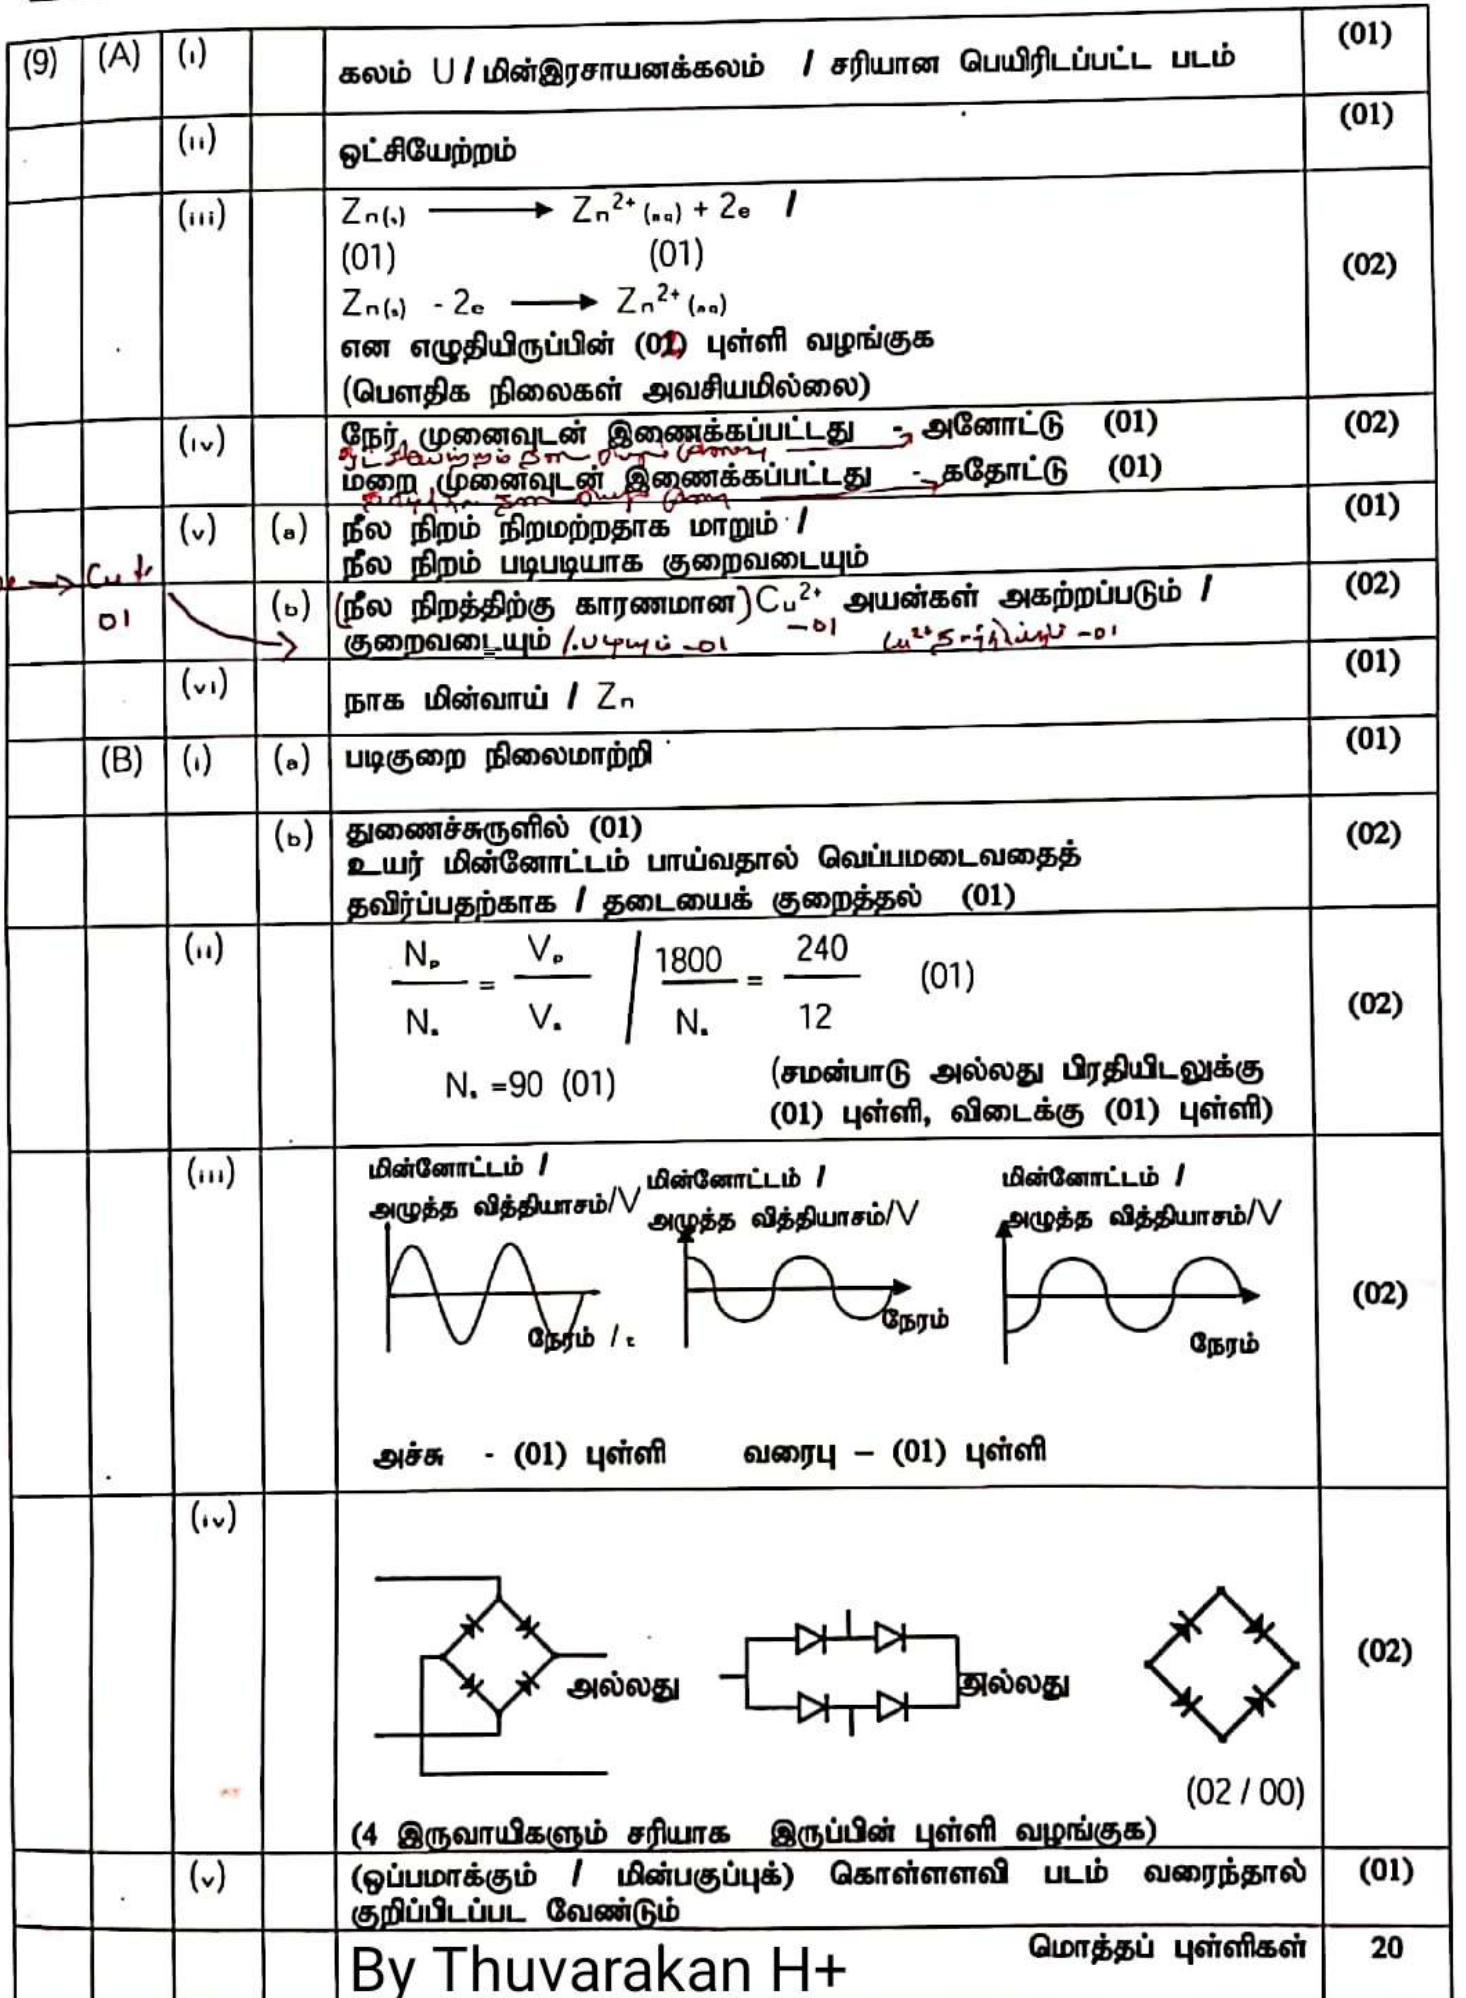 (9) (A) (i) கலம் U / மின்இரசாயனக்கலம் / சரியான பெயிரிடப்பட்ட படம் (01)
(ii) ஒட்சியேற்றம் (01)
(iii) Zn(s) ⟶ Zn²⁺(aq) + 2e /
(01) (01) (02)
Zn(s) - 2e ⟶ Zn²⁺(aq)
என எழுதியிருப்பின் புள்ளி வழங்குக
(பௌதிக நிலைகள் அவசியமில்லை)
(iv) நேர் முனைவுடன் இணைக்கப்பட்டது - அனோட்டு (01) (02)
மறை முனைவுடன் இணைக்கப்பட்டது - கதோட்டு (01)
(v) (a) நீல நிறம் நிறமற்றதாக மாறும் / (01)
நீல நிறம் படிபடியாக குறைவடையும்
→ Cu
01
(b) (நீல நிறத்திற்கு காரணமான) Cu²⁺ அயன்கள் அகற்றப்படும் / (02)
-01
குறைவடையும் -01 Cu²⁺ -01
(vi) நாக மின்வாய் / Zn (01)
(B) (i) (a) படிகுறை நிலைமாற்றி (01)
(b) துணைச்சுருளில் (01) (02)
உயர் மின்னோட்டம் பாய்வதால் வெப்பமடைவதைத்
தவிர்ப்பதற்காக / தடையைக் குறைத்தல் (01)
(ii) Np / Ns = Vp / Vs / 1800 / Ns = 240 / 12 (01) (02)
Ns =90 (01) (சமன்பாடு அல்லது பிரதியிடலுக்கு
(01) புள்ளி, விடைக்கு (01) புள்ளி)
(iii) மின்னோட்டம் / மின்னோட்டம் / மின்னோட்டம் /
அழுத்த வித்தியாசம்/V அழுத்த வித்தியாசம்/V அழுத்த வித்தியாசம்/V
நேரம் / t நேரம் நேரம் (02)
அச்சு - (01) புள்ளி வரைபு – (01) புள்ளி
(iv) அல்லது அல்லது (02)
(02 / 00)
(4 இருவாயிகளும் சரியாக இருப்பின் புள்ளி வழங்குக)
(v) (ஒப்பமாக்கும் / மின்பகுப்புக்) கொள்ளளவி படம் வரைந்தால் (01)
குறிப்பிடப்பட வேண்டும்
மொத்தப் புள்ளிகள் 20
By Thuvarakan H+